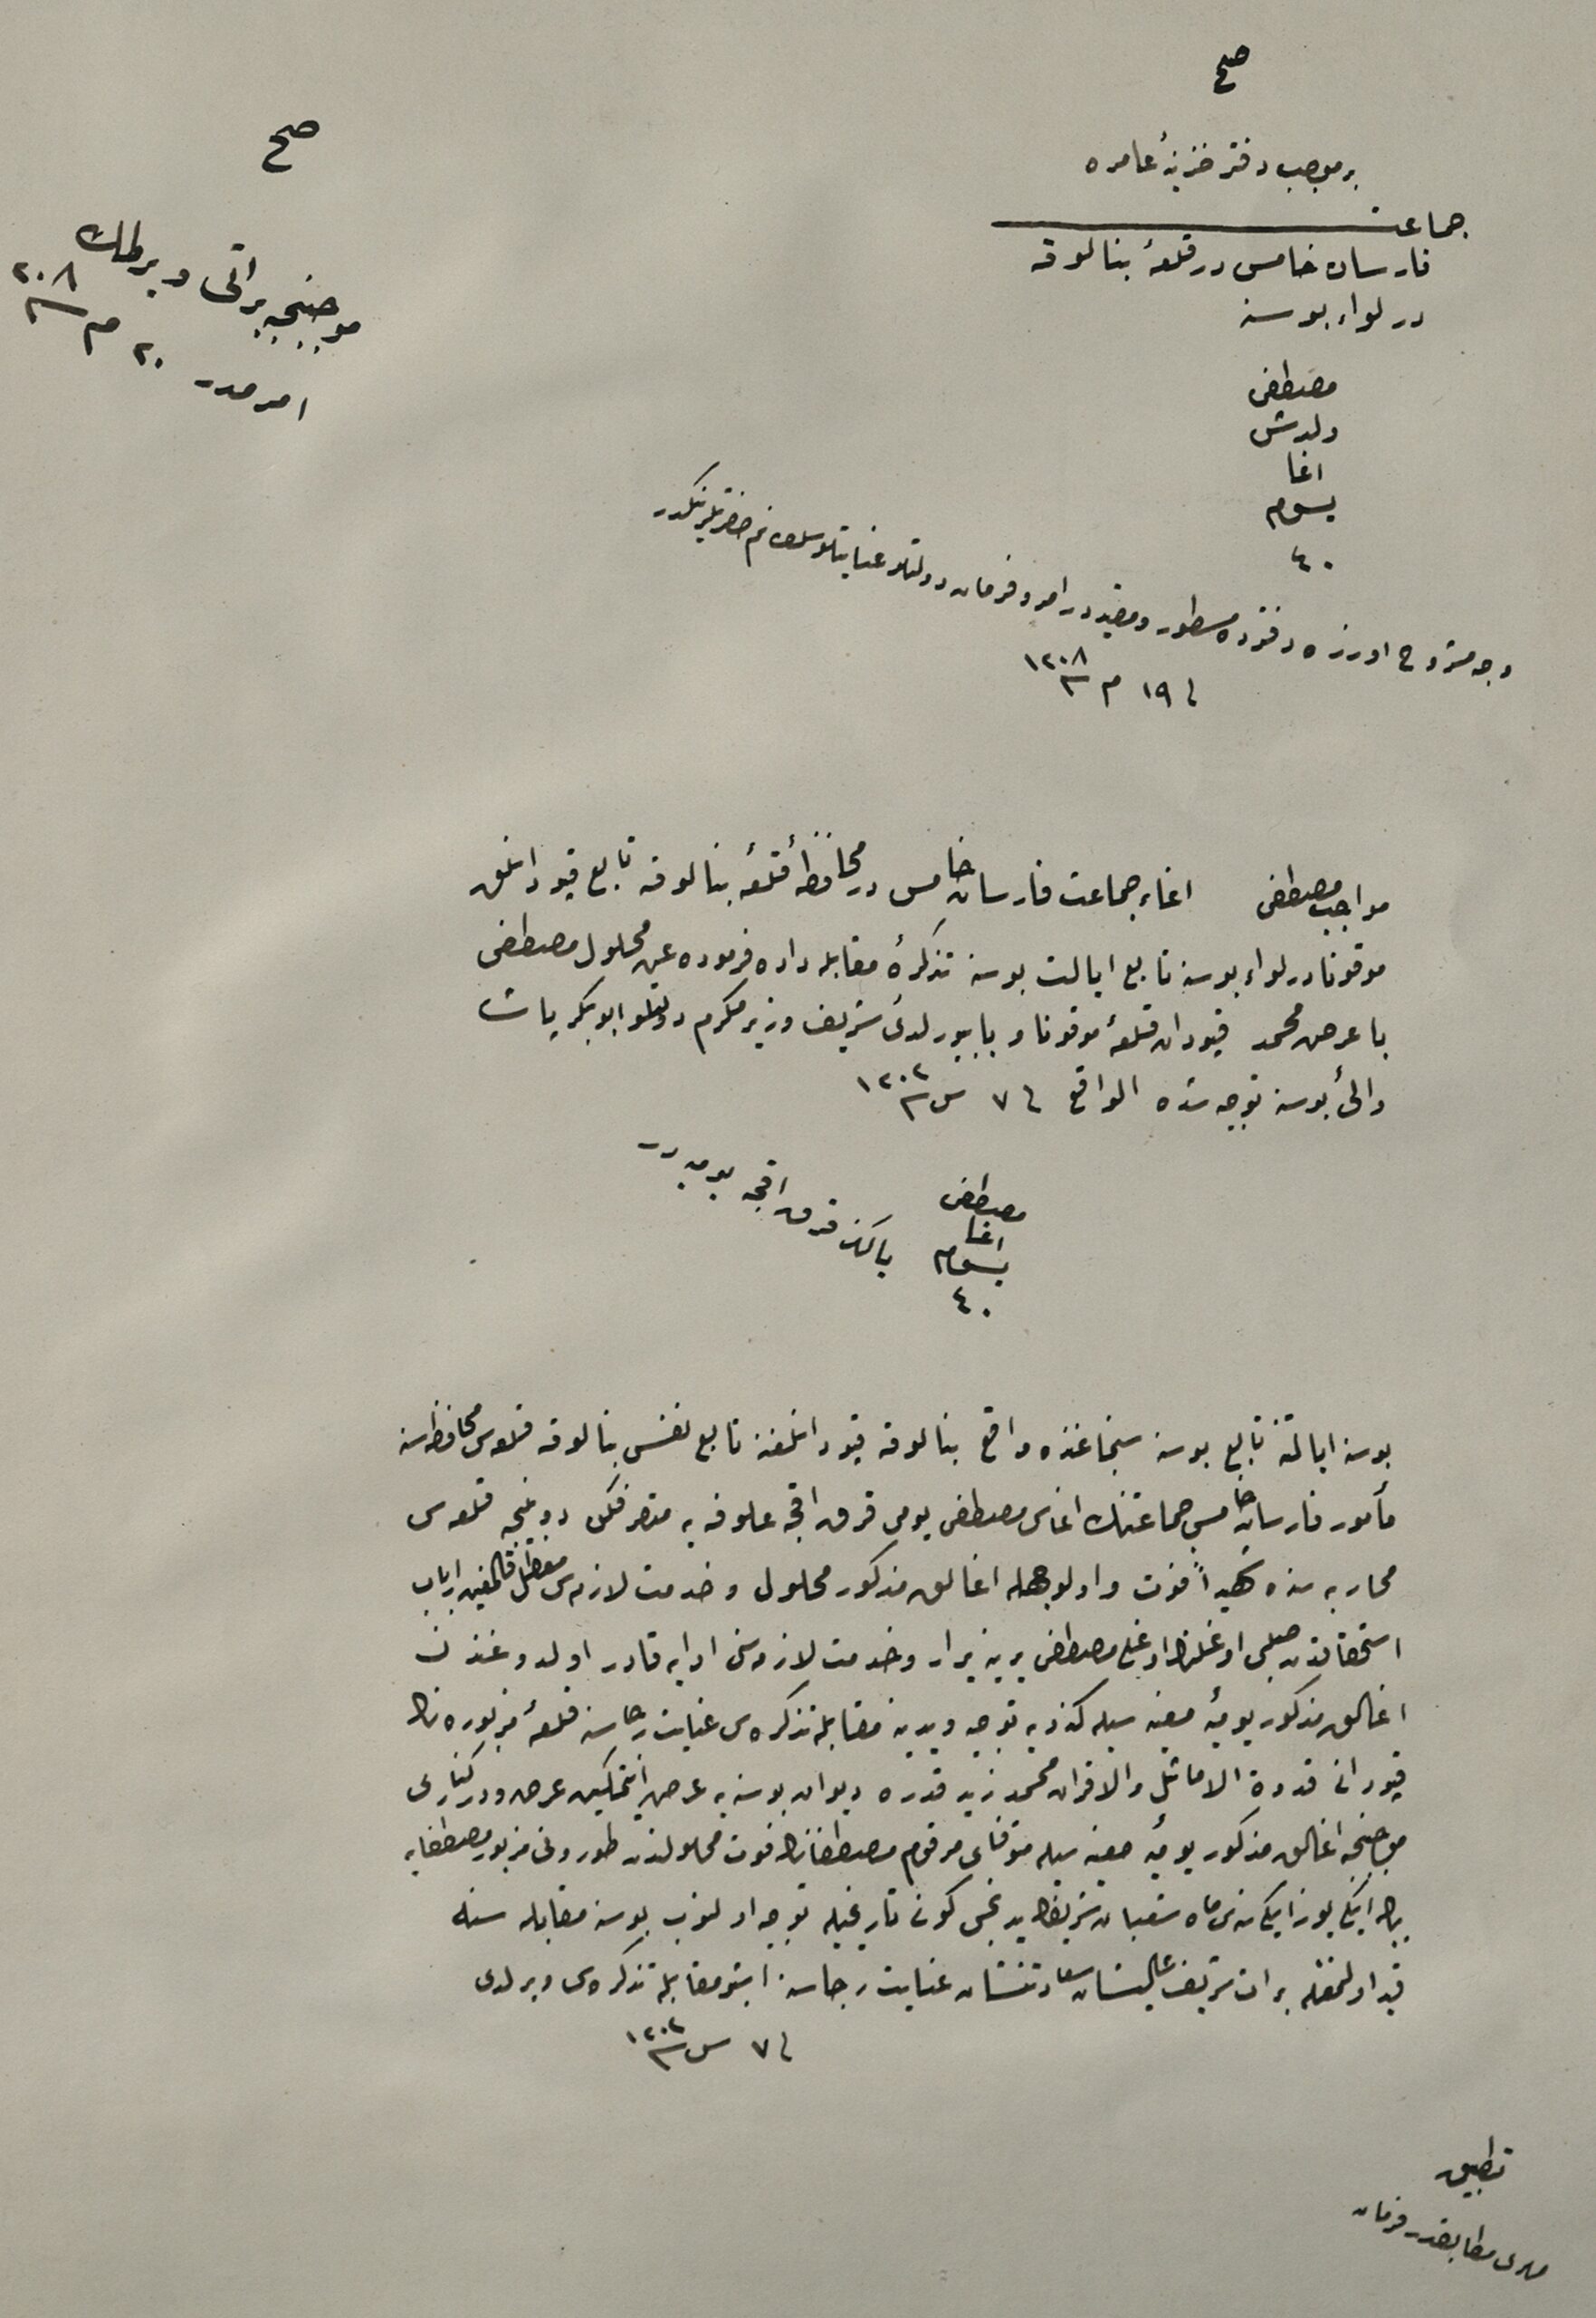 صح
بر موجب دفتر خزینهٔ عامره
جماعت
فارسان خامس در قلعهٔ بنالوقه
در لواء بوسنه
مصطفی
ولدش
اغا
یسوم
٤٠
وجه مشروح اوزره دفترده مسطور و مقیددر امر و فرمان دولتلو عنایتلو سلطانم حضرتلرینکدر
فی ١٩ م سنه ١٢٠٨
صح
موجبنجه براتی ویرلمك
امر در ٢٠ م سنه ٢٠٨
مواجب مصطفی اغاء جماعت فارسان خامس در محافظهٔ قلعهٔ بنالوقه تابع قپودانلق
موقوفا در لواء بوسنه تابع ایالت بوسنه تذکرهٔ مقابله داده فرموده عن محلول مصطفی
با عرض محمد قپودان قلعهٔ موقوفا و با بیورلدیٔ شریف وزیر مکرم دولتلو ابوبکر پاشا
والیٔ بوسنه توجیه شده الواقع فی ٧ ش سنه ١٢٠٢
مصطفی
اغا
یسوم
٤٠
یالکز قرق اقچه یومیه در
بوسنه ایالتنه تابع بوسنه سنجاغنده واقع بنالوقه قپودانلغنه تابع نفس بنالوقه قلعه‌سی محافظه‌سنه
مأمور فارسان خامس جماعتنك اغاسی مصطفی یومی قرق اقچه علوفه یه متصرف ایکن دوبنیچه قلعه‌سی
محاربه سنده شهیداً فوت و اولوجهله اغالق مذکور محلول و خدمت لازمه‌سی معطل قالمغین ارباب
استحقاقدن صلبی اوغلی مصطفی یرینه یرار و خدمت لازمه‌سنی ادایه قادر اولدوغندن
اغالق مذکور یومیهٔ معینه سیله کندویه توجیه و یدینه مقابله تذکره‌سی عنایت رجاسنه قلعهٔ مزبوره
قپودانی قدوة الاماثل والاقران محمد زید قدره دیوان بوسنه یه عرض ایتمکین عرض و درکناری
موجبنجه اغالق مذکور یومیهٔ معینه سیله متوفای مرقوم مصطفانك فوت محلولندن صلبی اوغلی مزبور مصطفایه
بیك ایکیوز ایکی سنه‌سی ماه شعبان شریفنك یدنجی کونی تاریخیله توجیه اولنوب بوسنه مقابله سنه
قید اولنمغله برات شریف عالیشان سعادتنشان عنایت رجاسنه اشبو مقابله تذکره‌سی ویرلدی
فی ٧ ش سنه ١٢٠٢
تطبیق
مهری مطابقدر فرمان